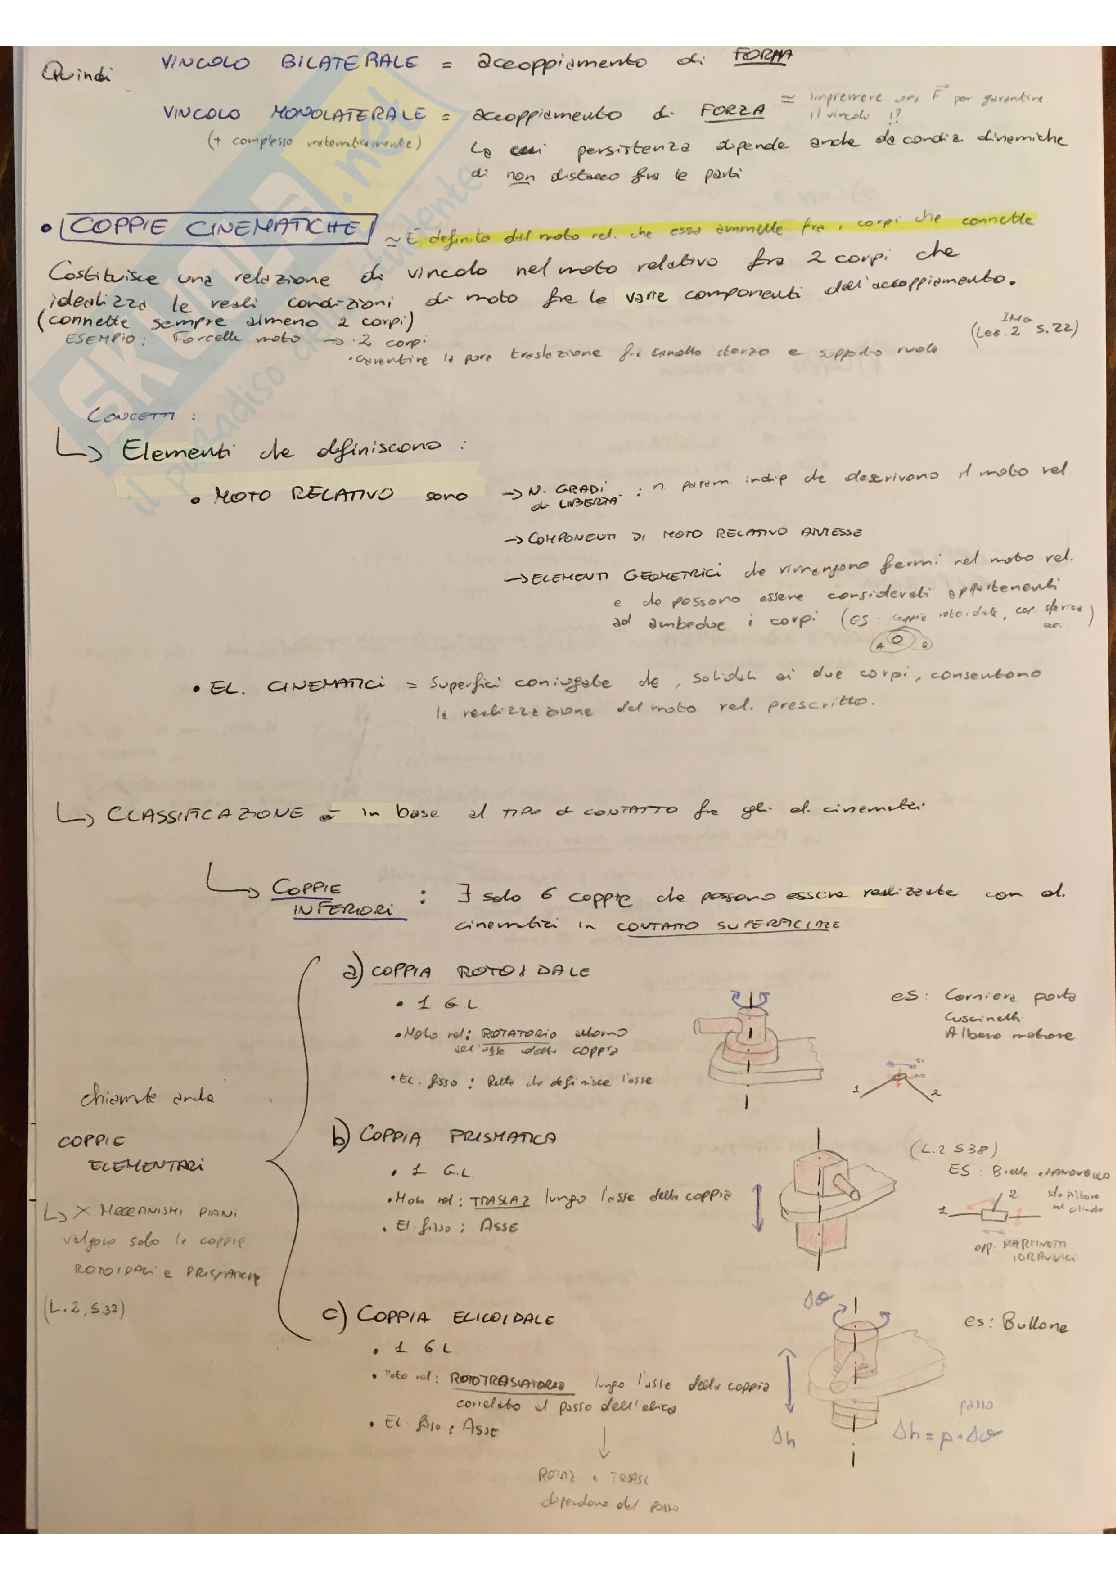 Quindi VINCOLO BILATERALE = accoppiamento di FORMA
VINCOLO MONOLATERALE = accoppiamento di FORZA ≃ imprimere una F per garantire
(+ complesso matematicamente) il vincolo !?
La cui persistenza dipende anche da condiz dinamiche
di non distacco fra le parti
• COPPIE CINEMATICHE ≃ È definito dal moto rel. che essa ammette fra i corpi che connette
Costituisce una relazione di vincolo nel moto relativo fra 2 corpi che
idealizza le reali condizioni di moto fra le varie componenti dell'accoppiamento.
(connette sempre almeno 2 corpi)
ESEMPIO: Forcella moto → • 2 corpi (Lez. 2 S.22)
• Garantire la pura traslazione fra cannotto sterzo e supporto ruota
CONCETTI:
↳ Elementi che definiscono:
• MOTO RELATIVO sono → N. GRADI di LIBERTÀ: n. param indip che descrivono il moto rel
→ COMPONENTI DI MOTO RELATIVO AMMESSE
→ ELEMENTI GEOMETRICI che rimangono fermi nel moto rel.
e che possono essere considerati appartenenti
ad ambedue i corpi (ES: coppia rotoidale, cop. sferica
A B
• EL. CINEMATICI = Superfici coniugate che, solidali ai due corpi, consentono
la realizzazione del moto rel. prescritto.
↳ CLASSIFICAZIONE = in base al TIPO di CONTATTO fra gli el. cinematici
↳ COPPIE INFERIORI : ∃ solo 6 coppie che possono essere realizzate con el.
cinematici in CONTATTO SUPERFICIALE
chiamate anche
COPPIE
ELEMENTARI
↳ X MECCANISMI PIANI
valgono solo le coppie
ROTOIDALI e PRISMATICHE
(L.2, S.37)
a) COPPIA ROTOIDALE
• 1 GL
• Moto rel: ROTATORIO attorno
all'asse della coppia
• El. fisso: Retta che definisce l'asse
es: Cerniera porta
Cuscinetti
Albero motore
1 2
b) COPPIA PRISMATICA
• 1 G.L
• Moto rel: TRASLAZ lungo l'asse della coppia
• El fisso: ASSE
(L.2 S38)
ES: Biella MANOVELLA
1 2
opp. MARTINETTI
IDRAULICI
c) COPPIA ELICOIDALE
• 1 GL
• Moto rel: ROTOTRASLATORIO lungo l'asse della coppia
correlato al passo dell'elica
• El fisso: ASSE
↓
ROTAZ e TRASL
dipendono dal passo
Δϑ
Δh
es: Bullone
passo
Δh = p · Δϑ
SKUOLA.net
il paradiso dello studente